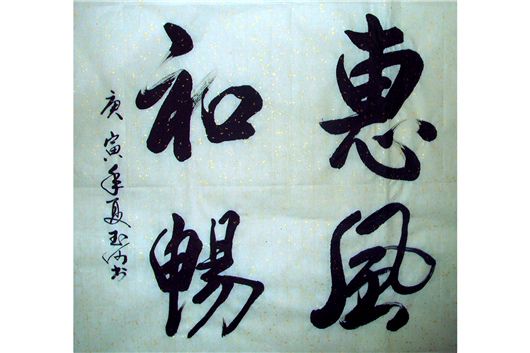 惠風
和暢
庚寅年夏玉沙书